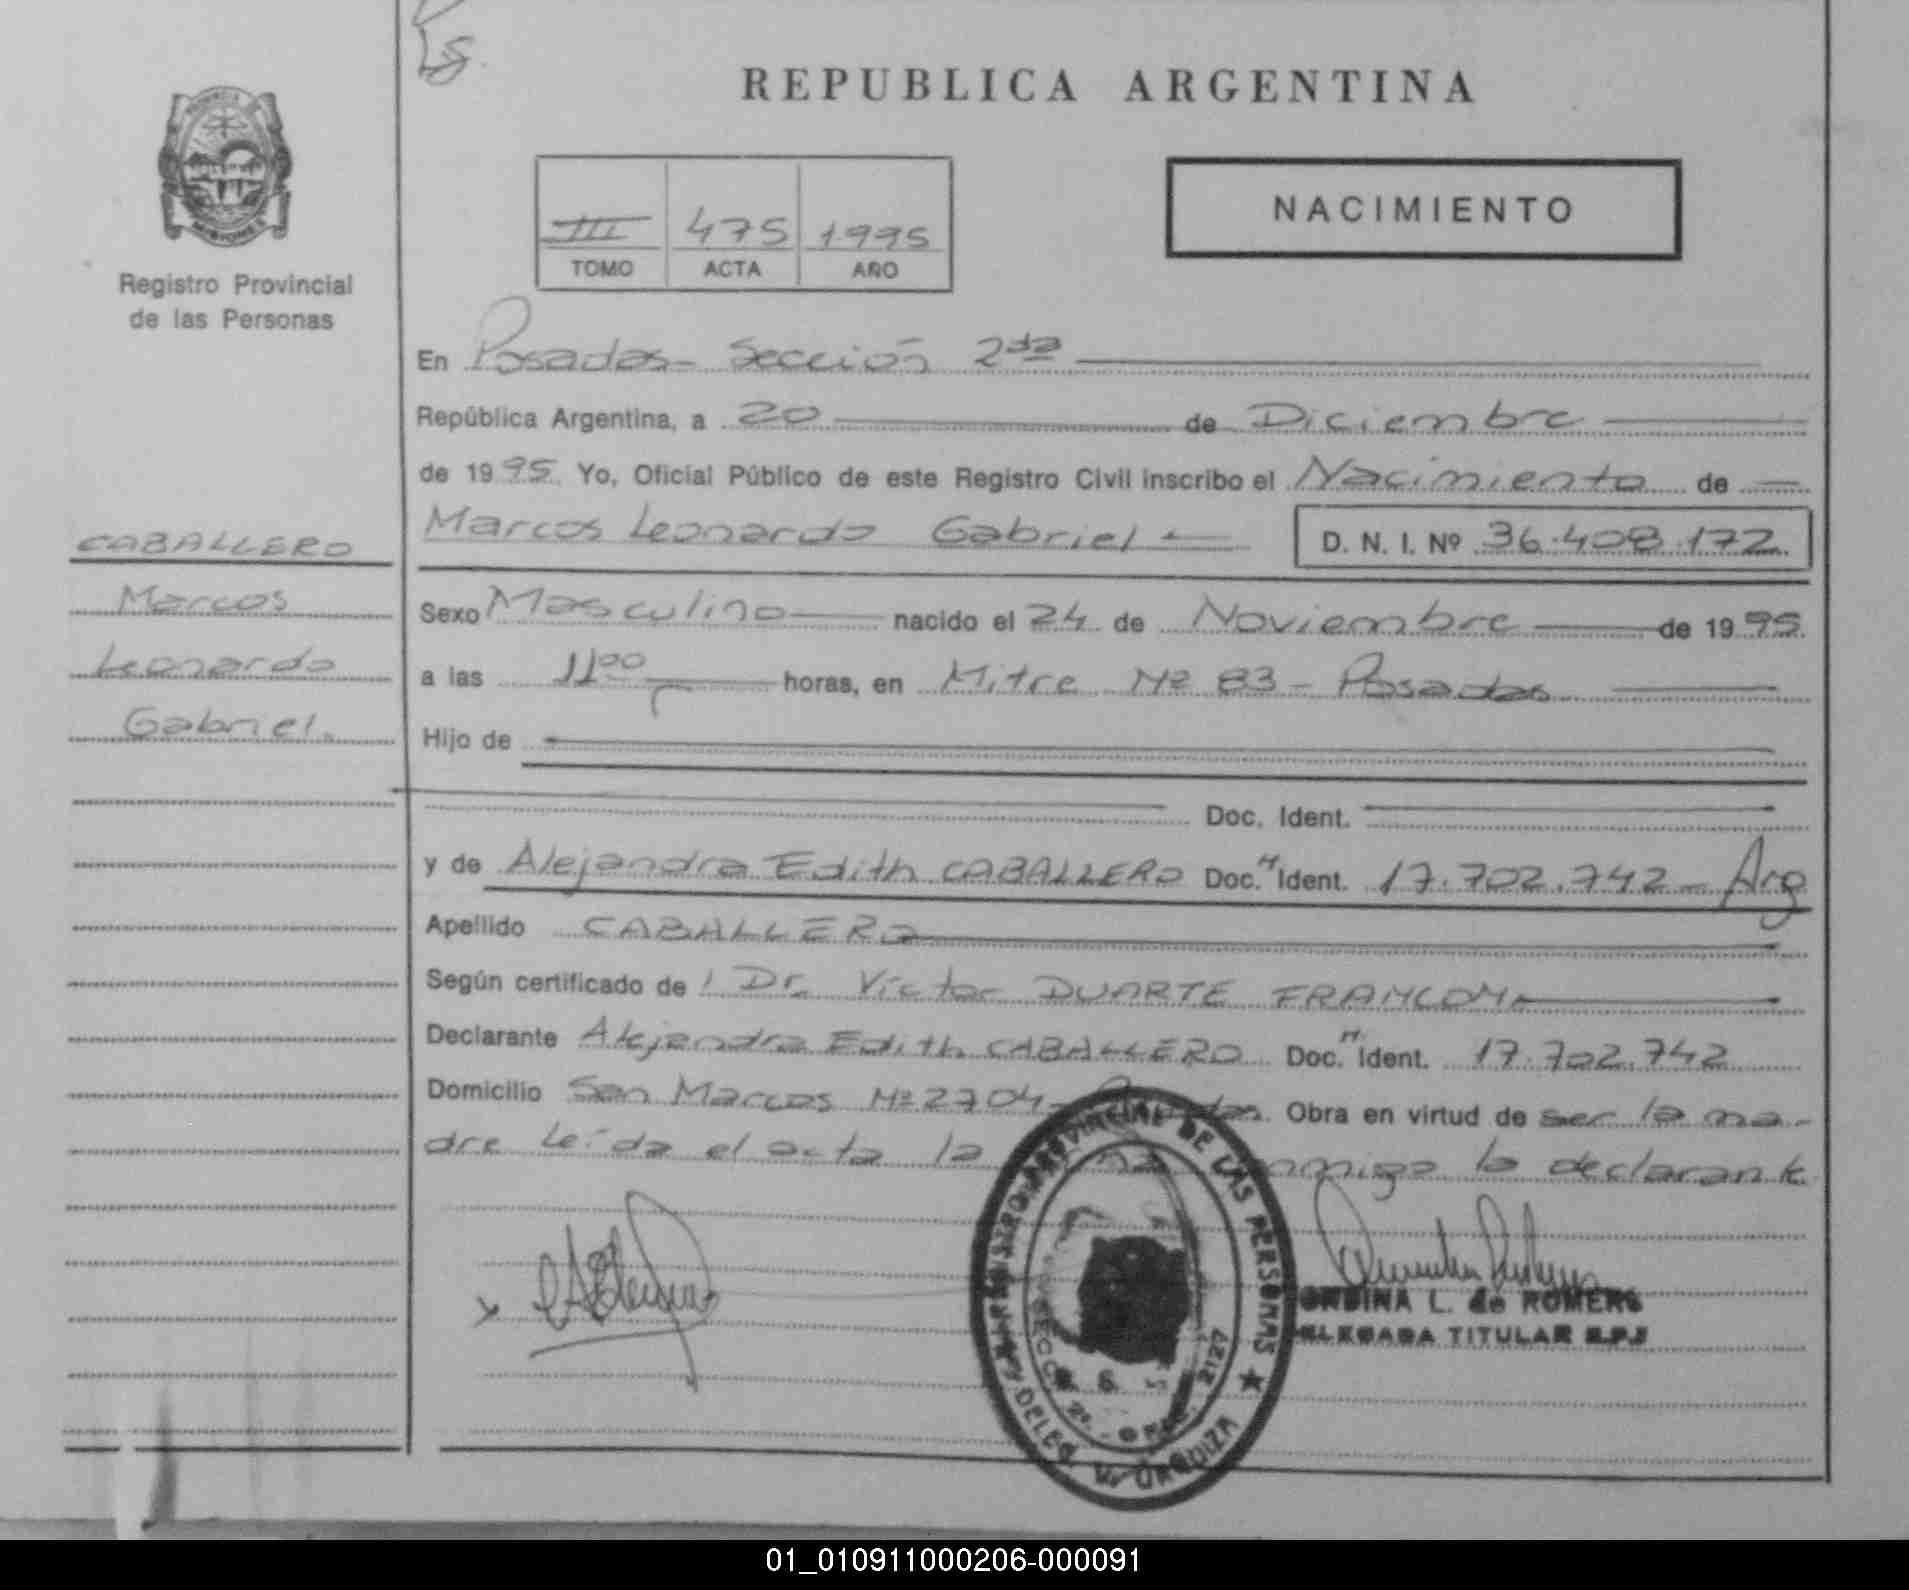 REPUBLICA ARGENTINA
NACIMIENTO
III 475 1995
TOMO ACTA AÑO
Registro Provincial
de las Personas
En Posadas - Sección 2da
República Argentina, a 20 de Diciembre
de 1995. Yo, Oficial Público de este Registro Civil inscribo el Nacimiento de
Marcos Leonardo Gabriel D. N. I. Nº 36.408.172
CABALLERO
Marcos
Leonardo
Gabriel.
Sexo Masculino nacido el 24 de Noviembre de 1995.
a las 11 00 horas, en Mitre Nº 83 - Posadas
Hijo de
Doc. Ident.
y de Alejandra Edith CABALLERO Doc. Ident. 17.702.742 - Arg
Apellido CABALLERO
Según certificado de Dr. Víctor DUARTE
Declarante Alejandra Edith CABALLERO Doc. Ident. 17.702.742
Domicilio San Marcos Nº 2704 - Obra en virtud de ser la ma-
dre Leída el acta la conmigo la declarante
REGISTRO PROVINCIAL DE LAS PERSONAS
DELEG. V. URQUIZA
L. de ROMERO
DELEGADA TITULAR R.P.P
01_010911000206-000091